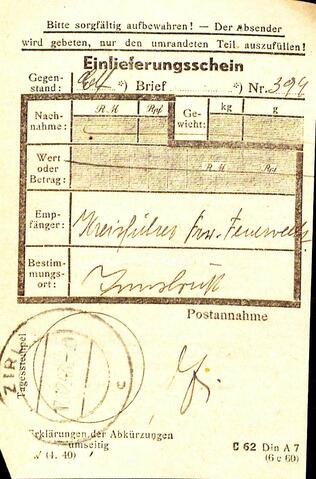 Bitte sorgfältig aufbewahren! — Der Absender
wird gebeten, nur den umrandeten Teil auszufüllen!
Einlieferungsschein
Gegen-
stand: *) Brief *) Nr. 394
Nach-
nahme: RM Rpf Ge-
wicht: kg g
Wert
oder
Betrag: RM Rpf
Emp-
fänger: Kreisführer Frw. Feuerwehr
Bestim-
mungs-
ort: Innsbruck
Postannahme
Tagesstempel
ZIRL
c
Erklärungen der Abkürzungen
umseitig
(4. 40)
C 62 Din A 7
(6 c 60)